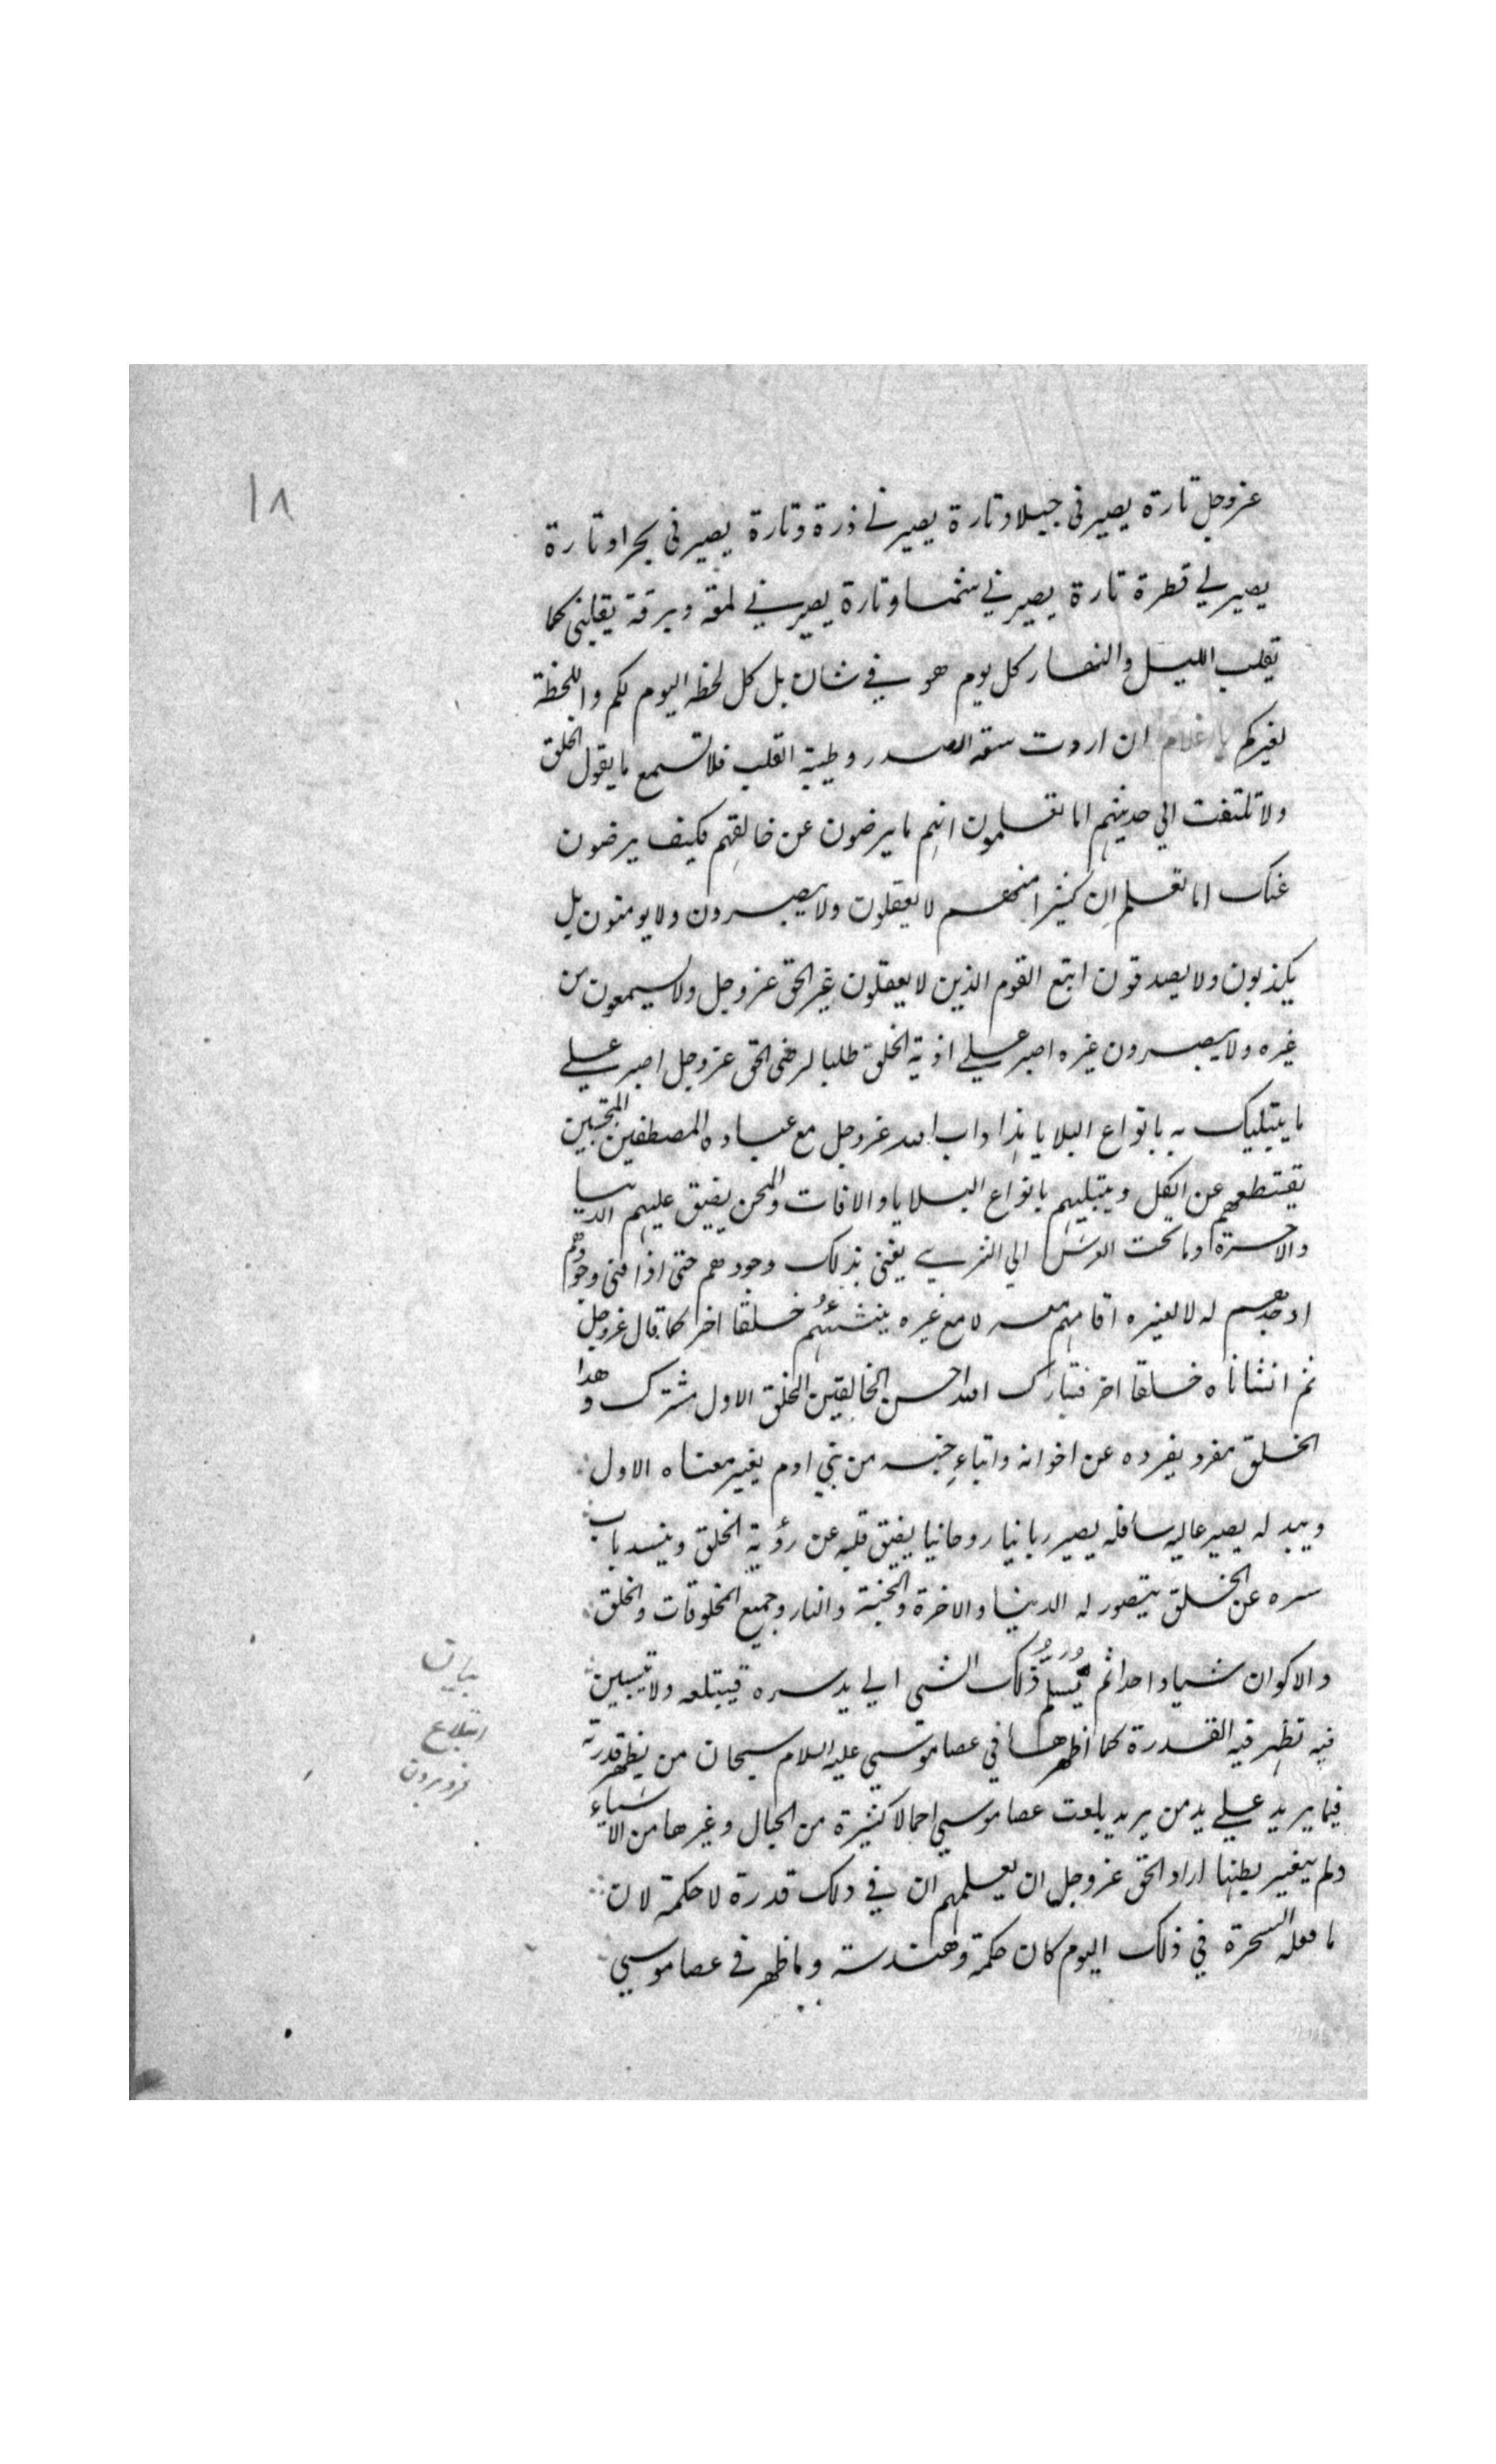 ١٨
عز وجل تارة يصيرنى جبلا وتارة يصيرنى ذرة وتارة يصيرنى بحرا وتارة
يصيرنى قطرة تارة يصيرنى شمسا وتارة يصيرنى لمعة وبرقة يقلبنى كما
يقلب الليل والنهار كل يوم هو في شان بل كل لحظة اليوم لكم واللحظة
لغيركم يا غلام ان اردت سعة الصدر وطيبة القلب فلا تسمع ما يقول الخلق
ولا تلتفت الي حديثهم اما تعلمون انهم ما يرضون عن خالقهم فكيف يرضون
عنك اما تعلم ان كثيرا منهم لا يعقلون ولا يبصرون ولا يومنون بل
يكذبون ولا يصدقون اتبع القوم الذين لا يعقلون غير الحق عز وجل ولا يسمعون من
غيره ولا يبصرون غيره اصبر علي اذية الخلق طلبا لرضى الحق عز وجل اصبر علي
ما يبتليك به بانواع البلايا هذا داب الله عز وجل مع عباده المصطفين المجتبين
يقتطعهم عن الكل ويبتليهم بانواع البلايا والافات والمحن يضيق عليهم الدنيا
والاخرة وما تحت العرش الي الثري يفنى بذلك وجودهم حتى اذا فنى وجودهم
اوجدهم له لا لغيره اقامهم معه لا مع غيره ينشئهم خلقا اخر كما قال عز وجل
ثم انشاناه خلقا اخر فتبارك الله احسن الخالقين الخلق الاول مشترك وهذا
الخلق مفرد يفرده عن اخوانه وابناء جنسه من بني ادم يغير معناه الاول
ويبدله يصير عاليه سافله يصير ربانيا روحانيا يضيق قلبه عن رؤية الخلق وينسد باب
سره عن الخلق يتصور له الدنيا والاخرة والجنة والنار وجميع المخلوقات والخلق
والاكوان شيا واحدا ثم يسلم ذلك الشي الي يد سره فيبتلعه ولا يتبين
فيه تظهر فيه القدرة كما اظهرها في عصا موسي عليه السلام سبحان من يظهر قدرته
فيما يريد علي يد من يريد بلعت عصا موسي احمالا كثيرة من الحبال وغيرها من الاشياء
ولم يتغير بطنها اراد الحق عز وجل ان يعلمهم ان في ذلك قدرة لا حكمة لان
ما فعله السحرة في ذلك اليوم كان حكمة وهندسة وما ظهر في عصا موسي
بيان
ابتلاع
فرو بردن